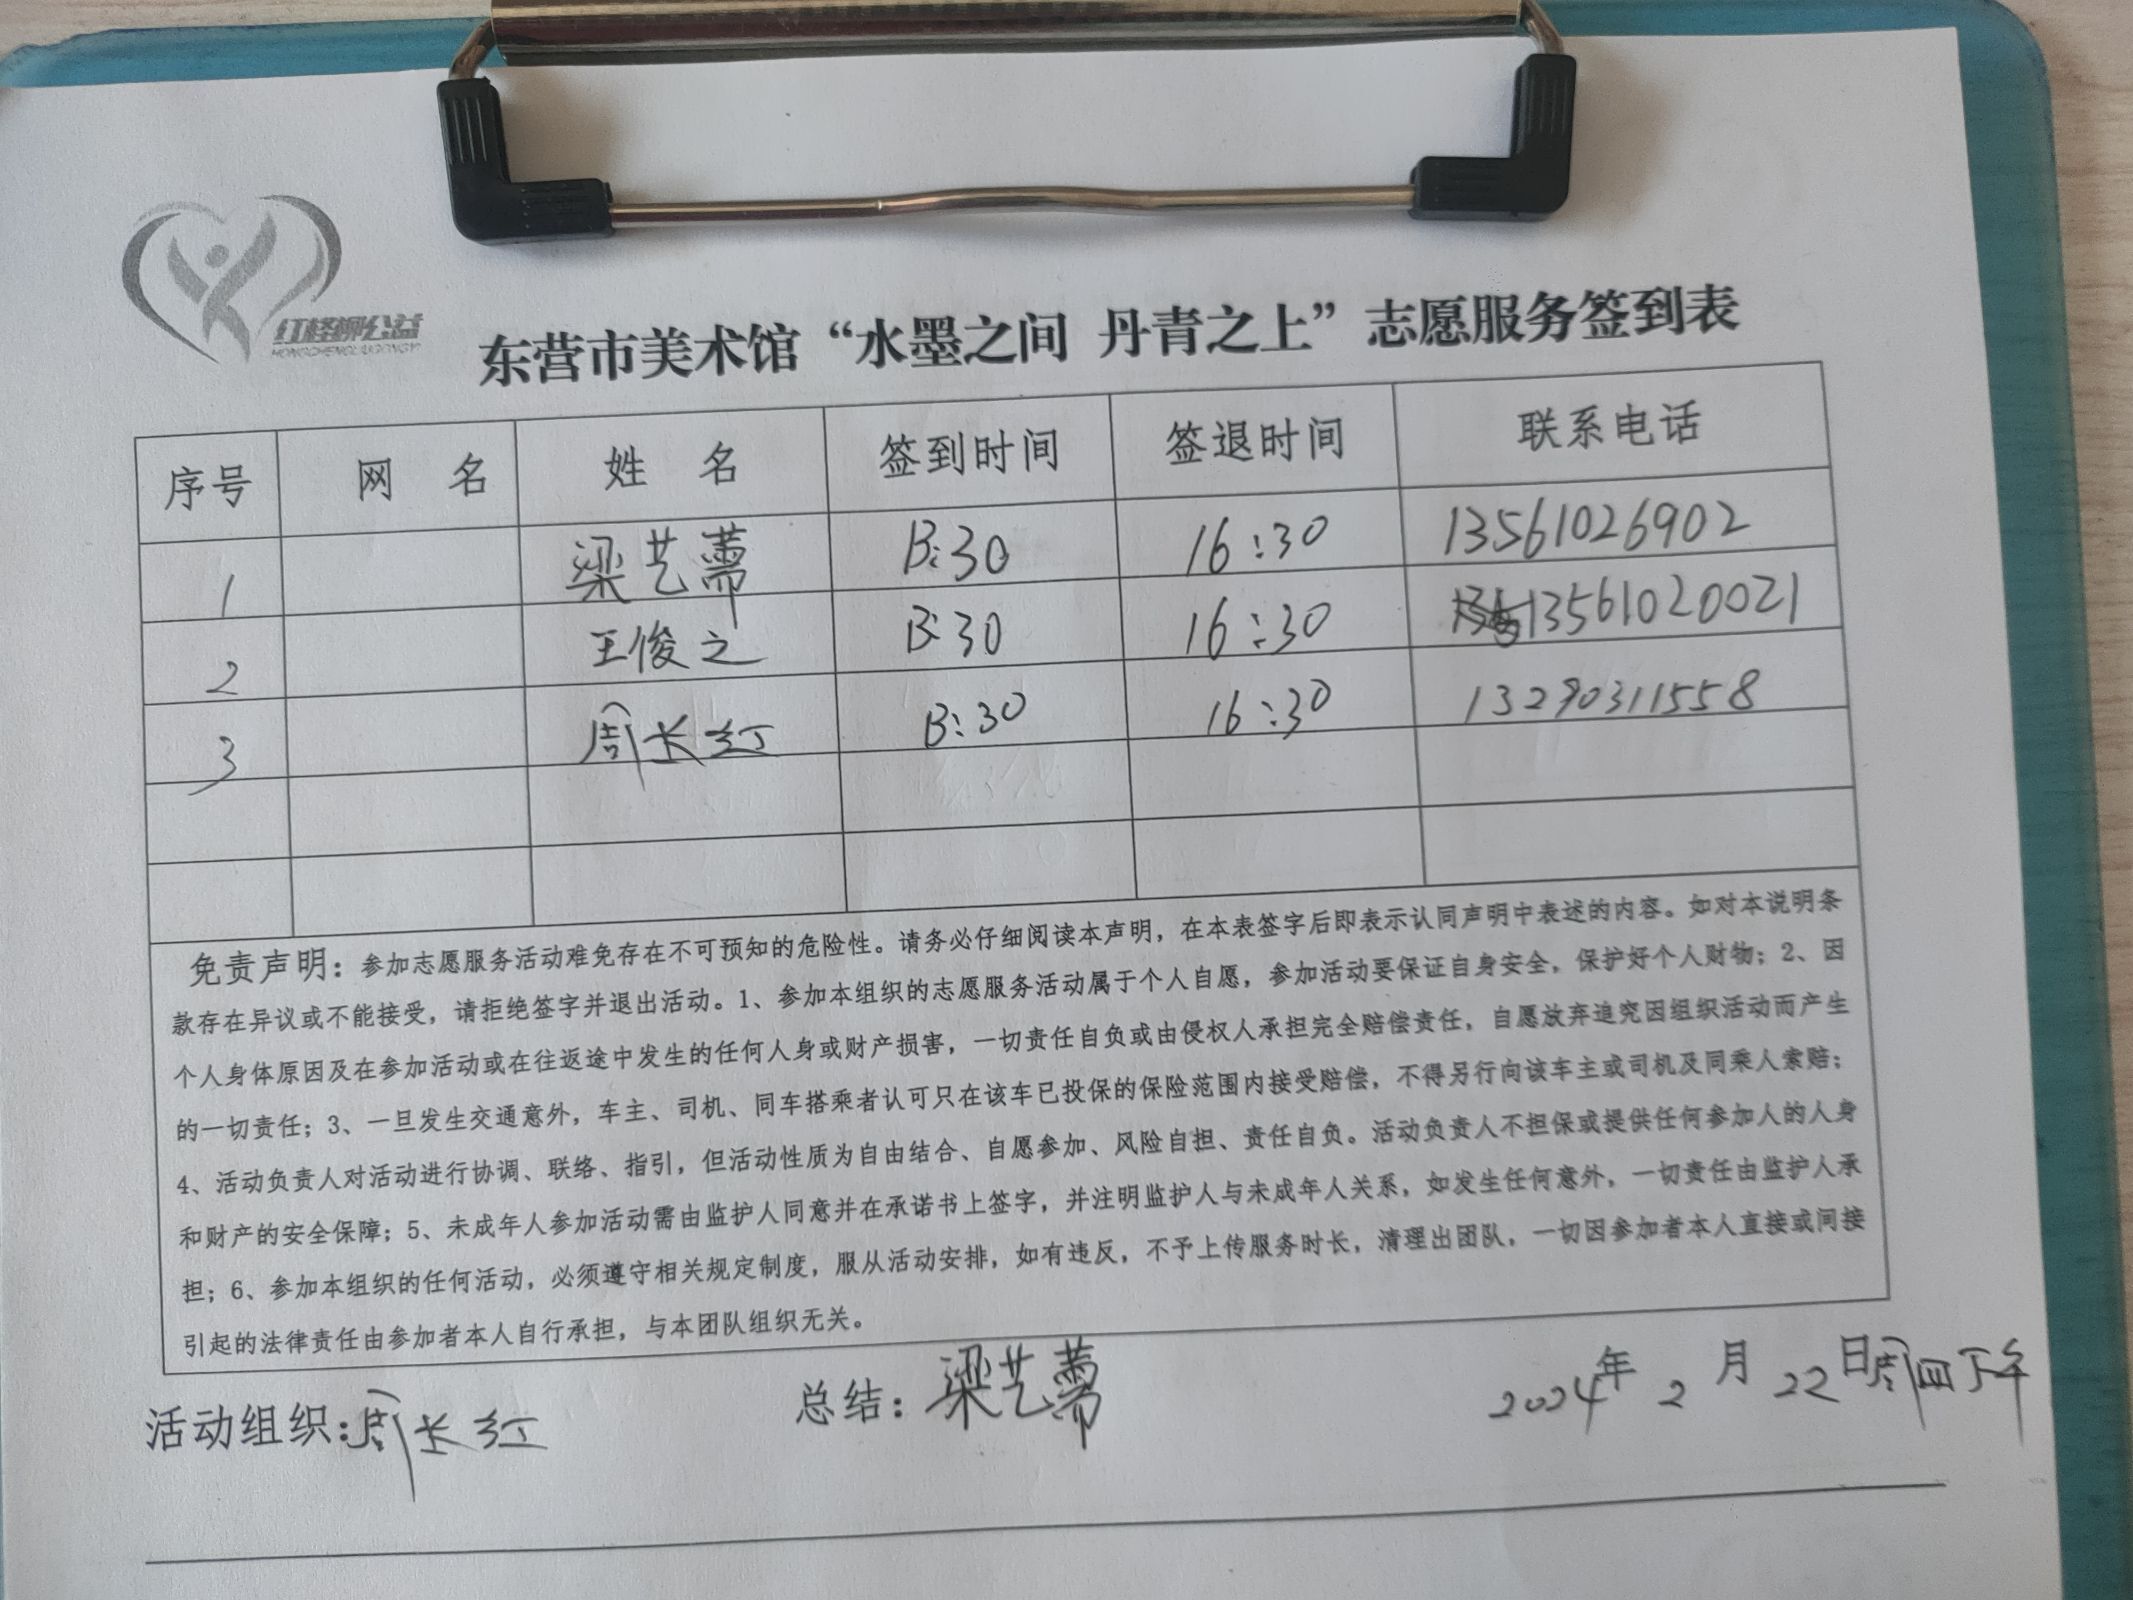 红柽柳公益
HONGCHENGLIUGONGYI
东营市美术馆“水墨之间 丹青之上”志愿服务签到表
序号 网 名 姓 名 签到时间 签退时间 联系电话
1 梁艺蔷 13:30 16:30 13561026902
2 王俊之 13:30 16:30 13561020021
3 周长红 13:30 16:30 13290311558
免责声明：参加志愿服务活动难免存在不可预知的危险性。请务必仔细阅读本声明，在本表签字后即表示认同声明中表述的内容。如对本说明条
款存在异议或不能接受，请拒绝签字并退出活动。1、参加本组织的志愿服务活动属于个人自愿，参加活动要保证自身安全，保护好个人财物；2、因
个人身体原因及在参加活动或在往返途中发生的任何人身或财产损害，一切责任自负或由侵权人承担完全赔偿责任，自愿放弃追究因组织活动而产生
的一切责任；3、一旦发生交通意外，车主、司机、同车搭乘者认可只在该车已投保的保险范围内接受赔偿，不得另行向该车主或司机及同乘人索赔；
4、活动负责人对活动进行协调、联络、指引，但活动性质为自由结合、自愿参加、风险自担、责任自负。活动负责人不担保或提供任何参加人的人身
和财产的安全保障；5、未成年人参加活动需由监护人同意并在承诺书上签字，并注明监护人与未成年人关系，如发生任何意外，一切责任由监护人承
担；6、参加本组织的任何活动，必须遵守相关规定制度，服从活动安排，如有违反，不予上传服务时长，清理出团队，一切因参加者本人直接或间接
引起的法律责任由参加者本人自行承担，与本团队组织无关。
活动组织：周长红 总结：梁艺蔷 2024年 2 月 22日周四下午